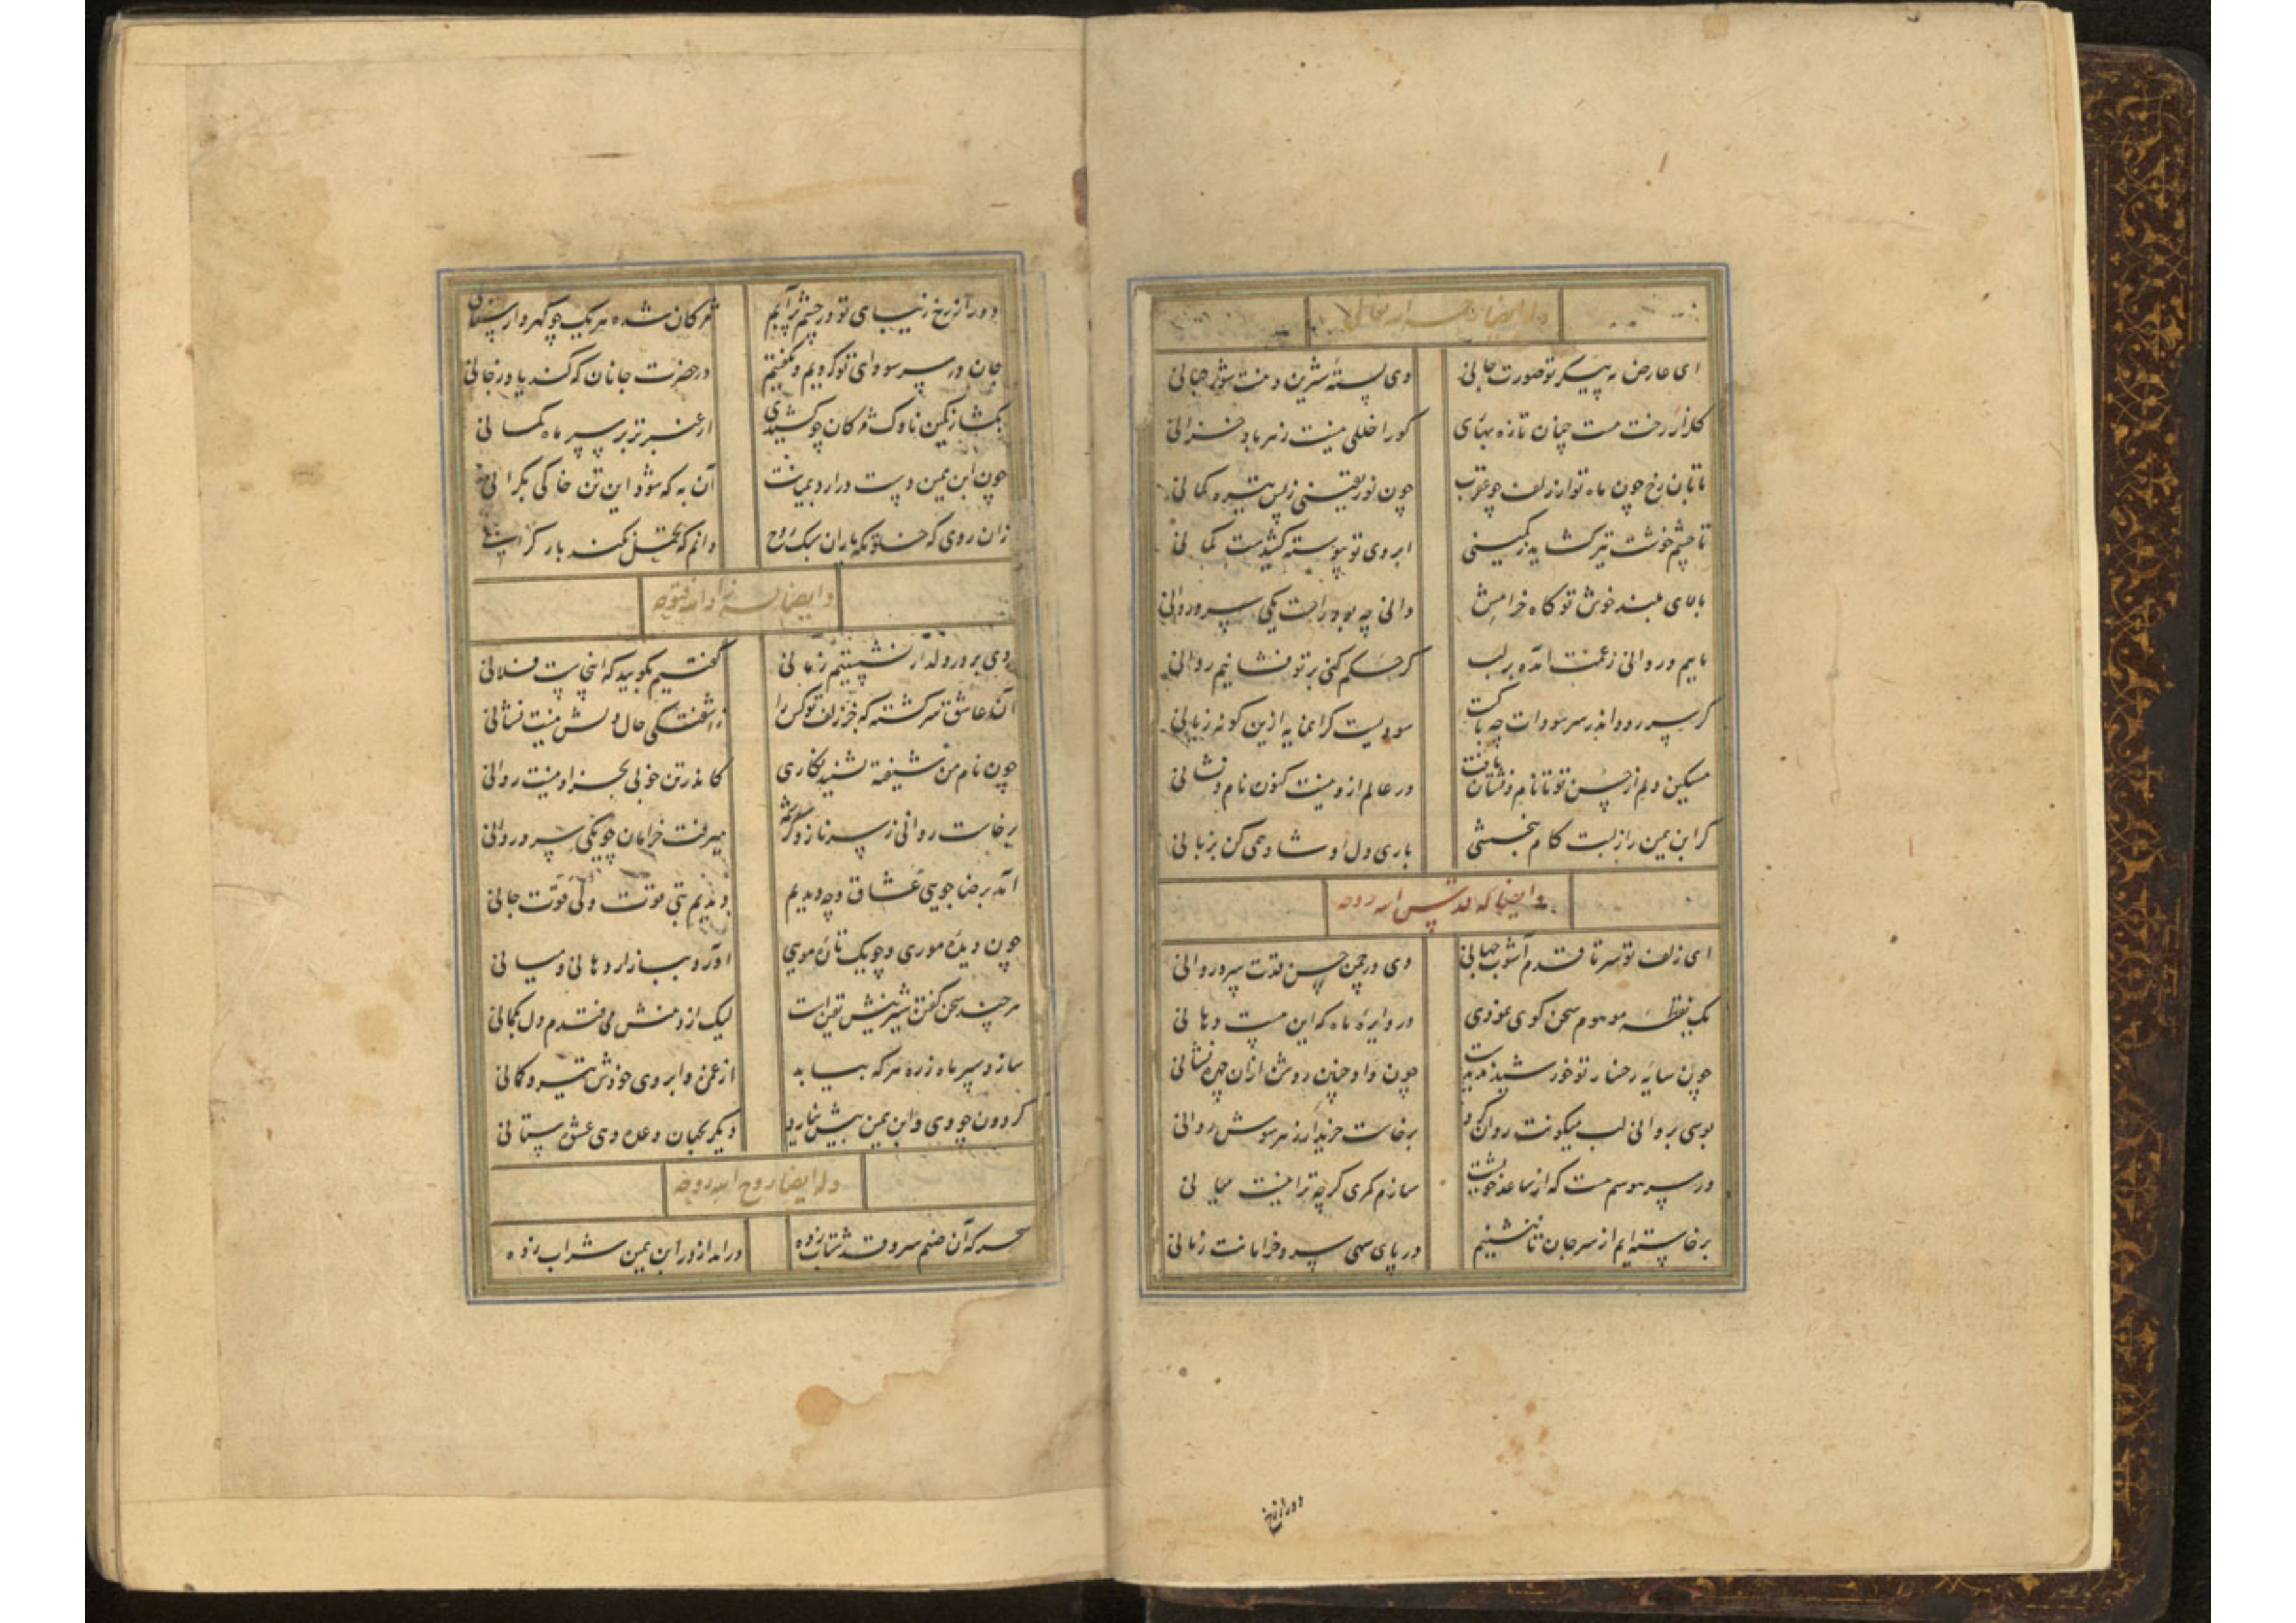 وله ایضا رحمه الله تعالی
ای عارض به پیکر تو صورت جانی وی پسته شیرین دهنت شور جهانی
گلزار رخت هست چنان تازه بهاری کورا خللی نیست زهر باد خزانی
تابان رخ چون ماه تو از زلف چو عقرب چون نور یقینی ز پس تیره گمانی
تا چشم خوشت تیر گشاید ز کمینی ابروی تو پیوسته کشیدست کمانی
بالای بلند خوش تو گاه خرامش دانی چه بود راست یکی سرو روانی
ماییم و روانی ز غمت آمده بر لب گر حکم کنی بر تو فشانیم روانی
گر سر رود اندر سر سودات چه باکست سودیست گرانمایه ازین گونه زیانی
مسکین دلم از حسن تو تا نام و نشان یافت در عالم ازو نیست کنون نام و نشانی
گر ابن یمین را ز لبت کام نبخشی باری دل او شاد همی کن بزبانی
و ایضا له قدس الله روحه
ای زلف تو سر تا قدم آشوب جهانی وی در چمن حسن قدت سرو روانی
یک نقطه موهوم سخن گوی نمودی در دایره ماه که این هست دهانی
چون سایه رخسار تو خورشید ندیدست چون واو چنان روشن ازان چرخ نشانی
بوسی بروانی لب میگونت روان کرد برخاست خریدار ز هر سوش روانی
در سر هوسم هست که از ساعد خویشت سازم کمری گرچه ترا نیست میانی
برخاسته ایم از سر جان تا ننشینیم در پای سهی سرو خرامانت زمانی
دور از رخ
دور از رخ زیبای تو در چشم پر آبم مژگان شده هر یک چو گهردار سنانی
جان در سر سودای تو کردیم و نگفتیم در حضرت جانان که کند یاد ز جانی
بگشا ز کمین ناوک مژگان چو کشیدی از عنبر تر بر سپر ماه کمانی
چون ابن یمین دست در آرد بمیانت آن به که شود این تن خاکی بکرانی
زان روی که خلوتگه یاران سبک روح دانم که تحمل نکند بار گرانی
و ایضا له زاد الله فتوحه
دی بر در دلدار نشستیم زمانی گفتیم بگویید که اینجاست فلانی
آن عاشق سرگشته که جز زلف تو کس را ز آشفتگی حال دلش نیست نشانی
چون نام من شیفته بشنید نگاری کاندر تن خوبی بجز او نیست روانی
برخاست روانی ز سر ناز و کرشمه میرفت خرامان چو یکی سرو روانی
آمد برضا جویی عشاق و چه دیدیم دیدیم بتی قوت دلی قوت جانی
چون دیده موری و چو یک تاره مویی آورد ببازار دهانی و میانی
هر چند سخن گفتن شیرینش یقین است لیک از دهنش می فتدم دل بگمانی
سازد سپر ماه زره هر که بیابد از غمزه و ابروی خودش تیر و کمانی
گردون چو وی و ابن یمین بیش نیارد دیگر بجهان وعده دهی عشق ستانی
وله ایضا روح الله روحه
سحر که آن صنم سرو قد شتاب زده در آمد از در ابن یمین شراب زده